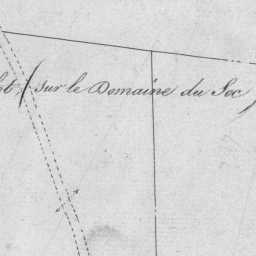 (sur le Domaine du Soc)